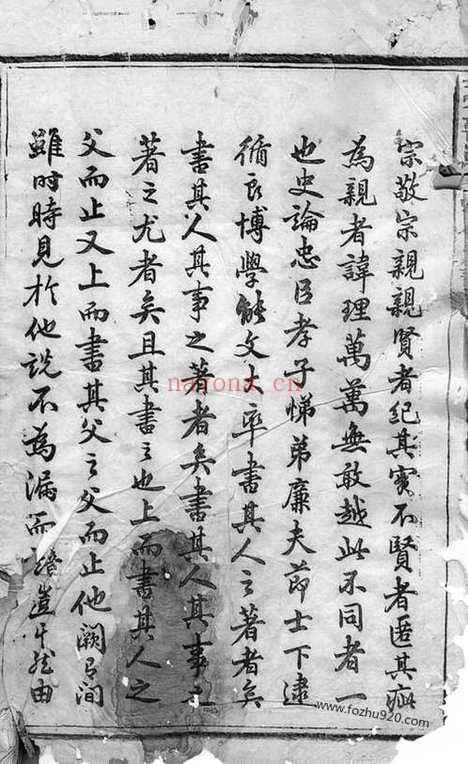 宗敬宗親親賢者紀其實不賢者匿其疵
為親者諱理萬萬無敢越此不同者一
也史論忠臣孝子悌弟廉夫節士下逮
循良博學能文大率書其人之著者矣
書其人其事之著者矣書其人其事之
著之尤者矣且其書之也上而書其人之
父而止又上而書其父之父而止他闕有間
雖時時見於他說不為漏而豈
nayona.cn
www.fozhu920.com